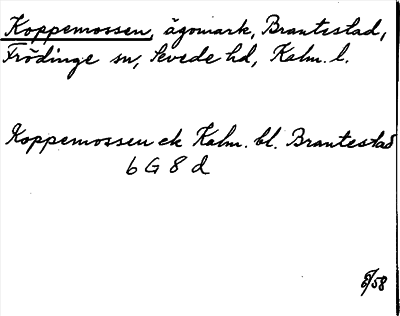 Koppemossen, ägomark, Brantestad,
Frödinge sn, Sevede hd, Kalm. l.
Koppemossen ek Kalm. bl. Brantestad
6 G 8 d
/58